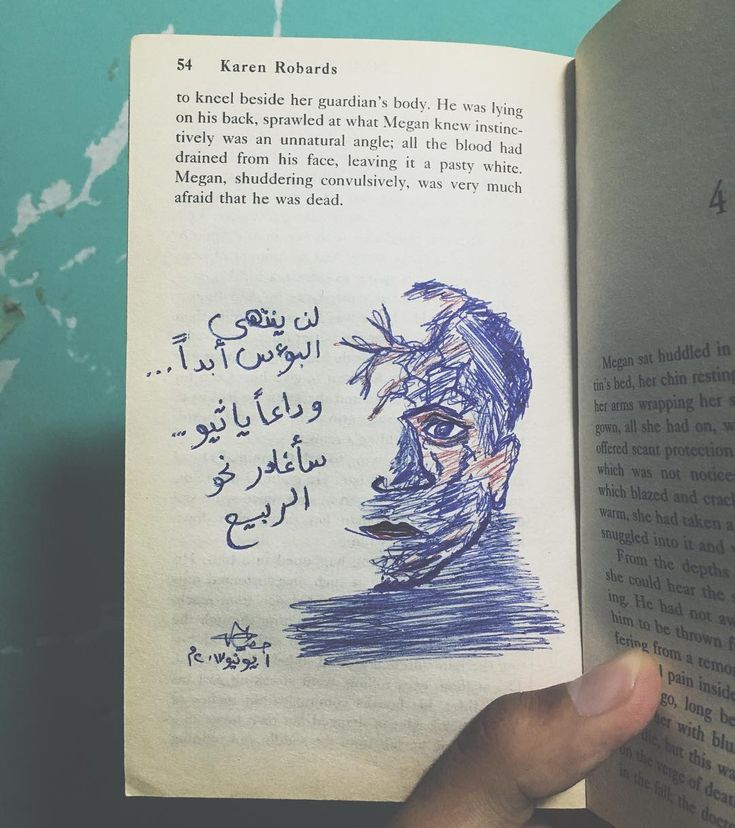 54 Karen Robards
to kneel beside her guardian's body. He was lying
on his back, sprawled at what Megan knew instinc-
tively was an unnatural angle; all the blood had
drained from his face, leaving it a pasty white.
Megan, shuddering convulsively, was very much
afraid that he was dead.
لن ينتهي
البؤس أبداً...
وداعاً يا ثيو...
سأغادر نحو
الربيع
١ يونيو ٢٠١٧م
4
Megan sat huddled in
tin's bed, her chin resting
her arms wrapping her s
gown, all she had on, w
offered scant protection
which was not notice
which blazed and crack
warm, she had taken a
snuggled into it and
From the depths
she could hear the s
ing. He had not aw
him to be thrown f
fering from a remo
pain inside
go, long be
her with blu
die, but this wa
on the verge of dea
in the fall, the doc